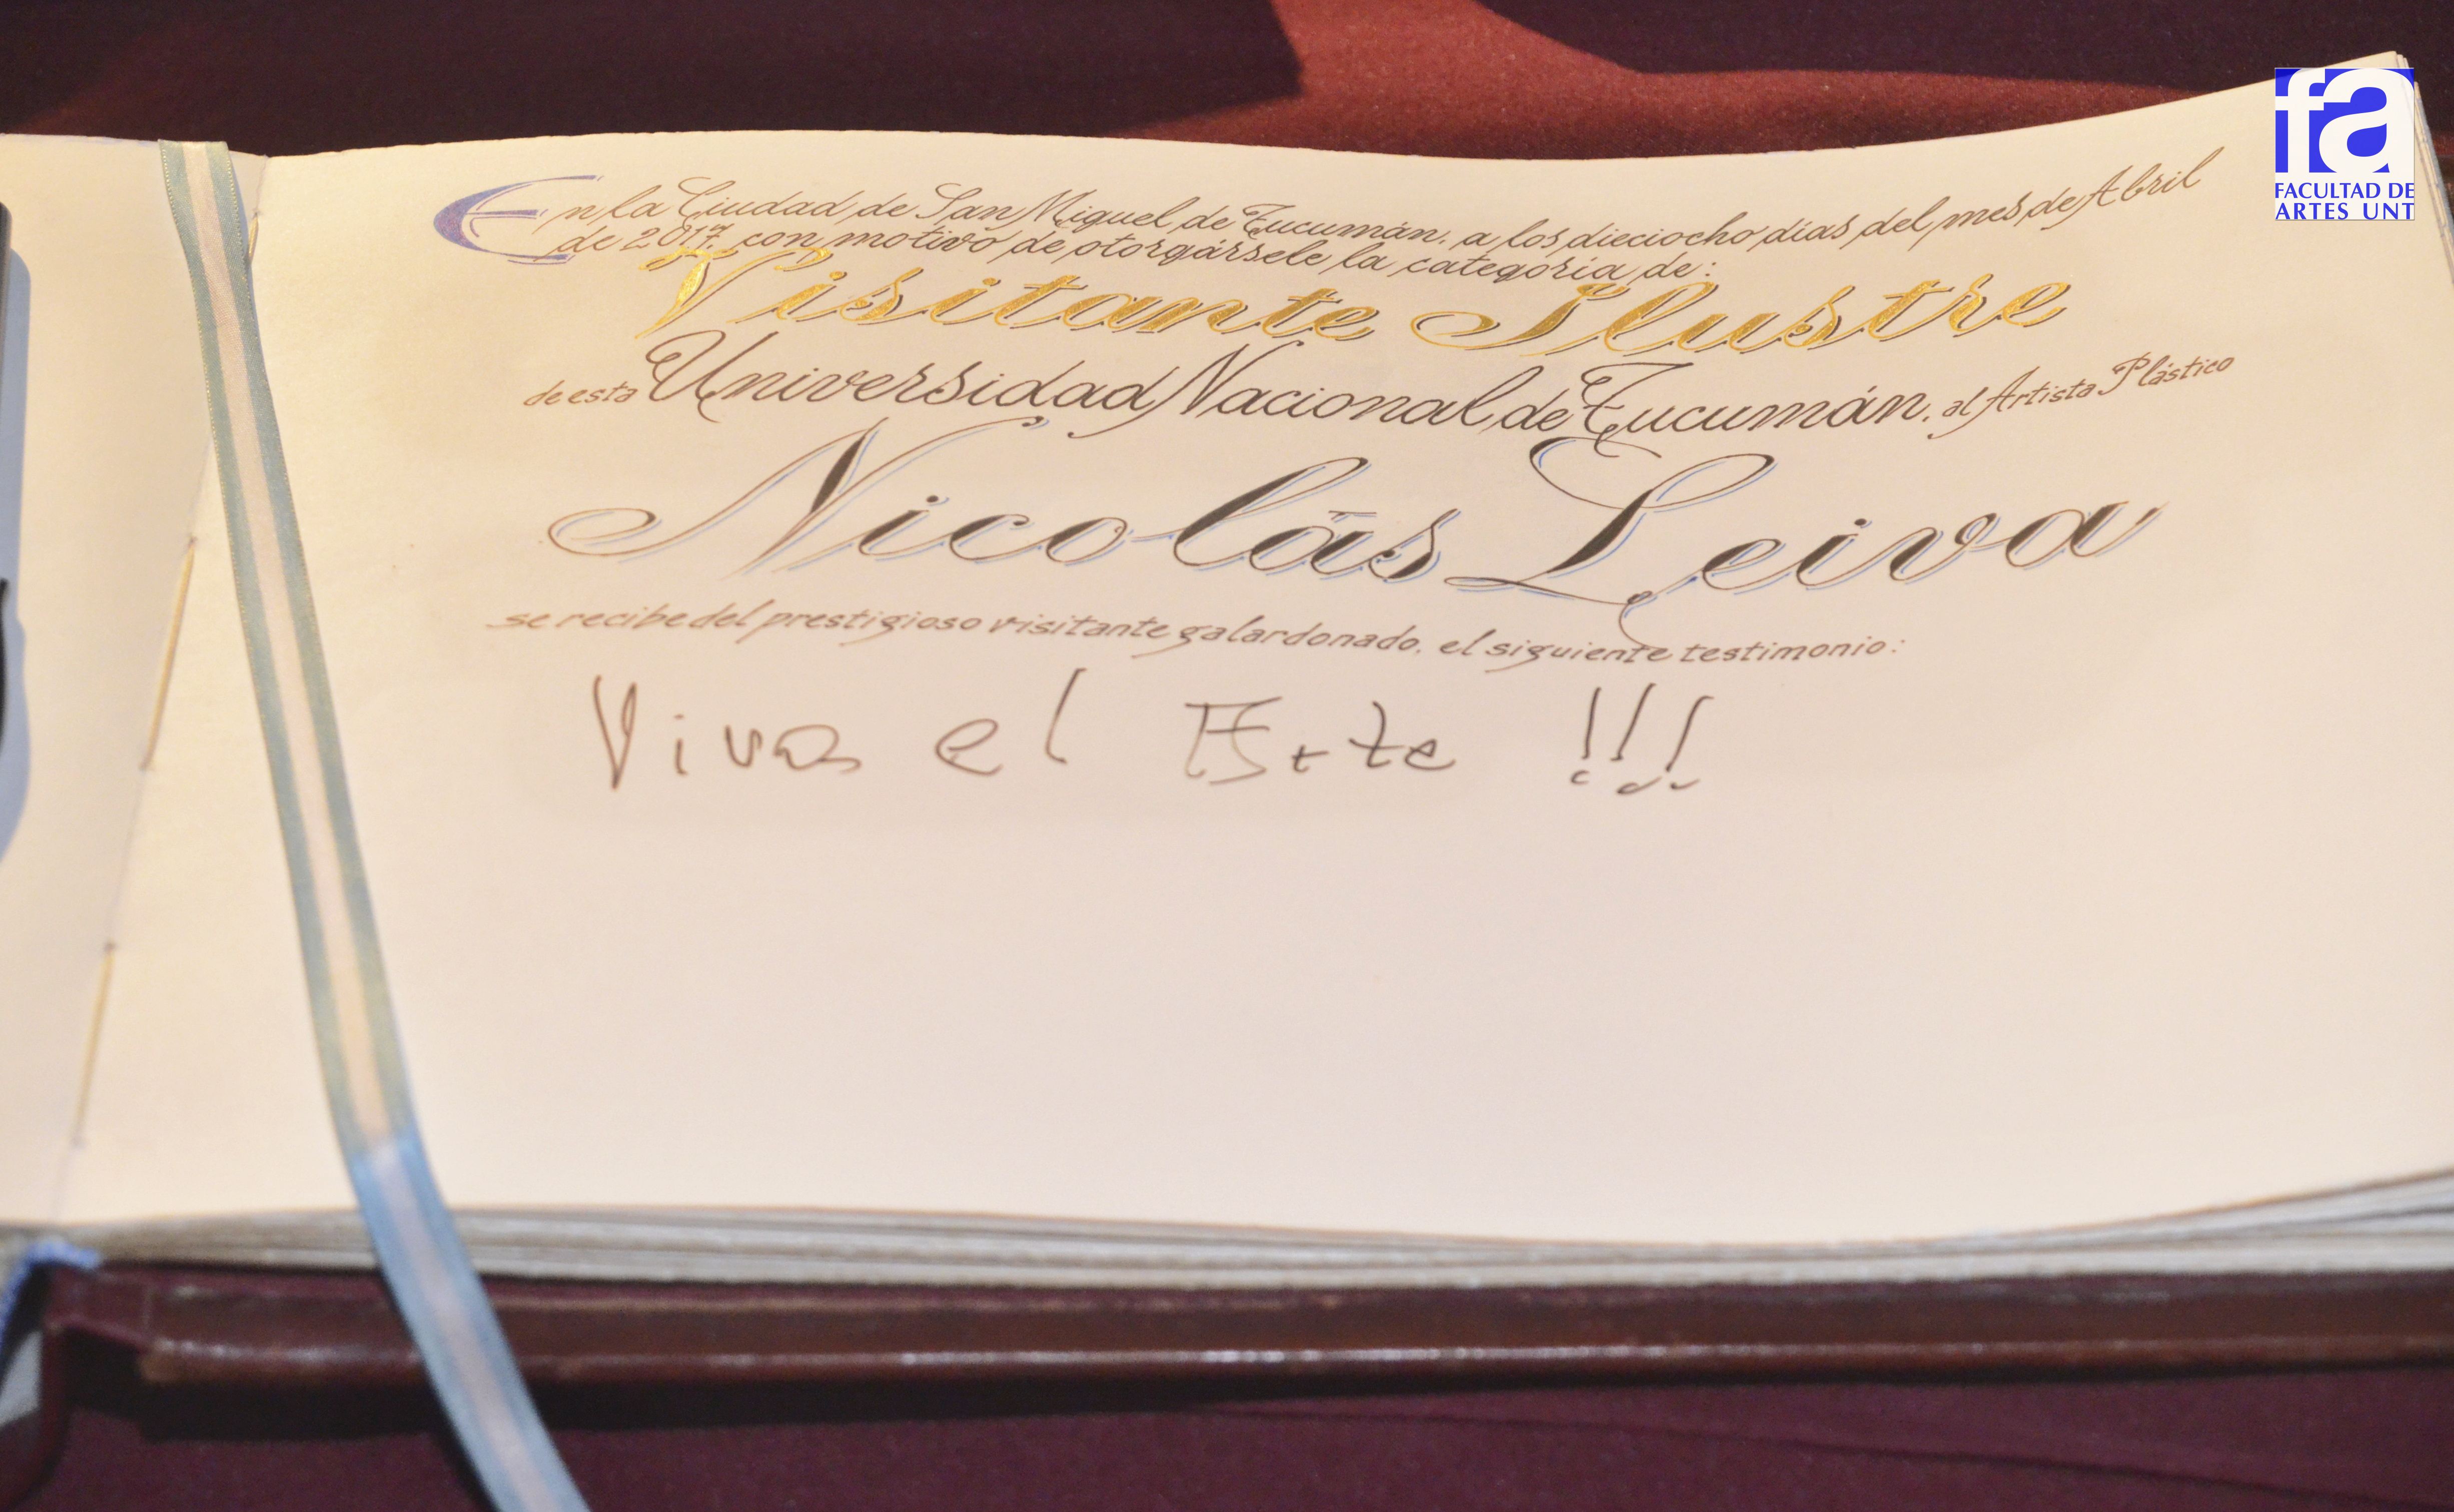 En la Ciudad de San Miguel de Tucumán, a los dieciocho días del mes de Abril
de 2017, con motivo de otorgársele la categoría de:
Visitante Ilustre
de esta Universidad Nacional de Tucumán, al Artista Plástico
Nicolás Leiva
se recibe del prestigioso visitante galardonado, el siguiente testimonio:
Viva el Arte !!!
fa
FACULTAD DE
ARTES UNT